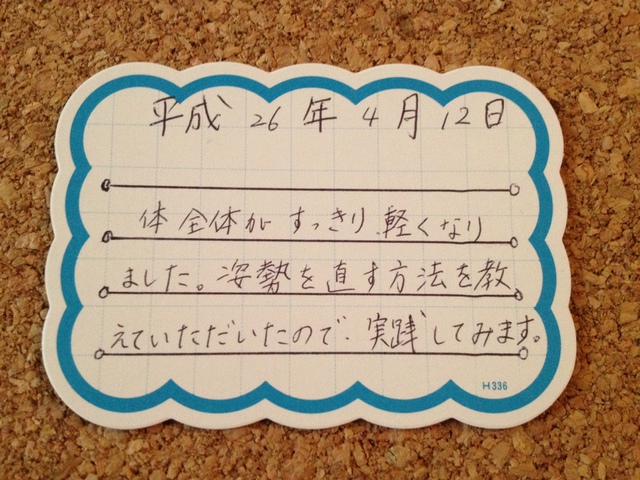 平成 26 年 4 月 12 日
体全体がすっきり軽くなり
ました。姿勢を直す方法を教
えていただいたので、実践してみます。
H336